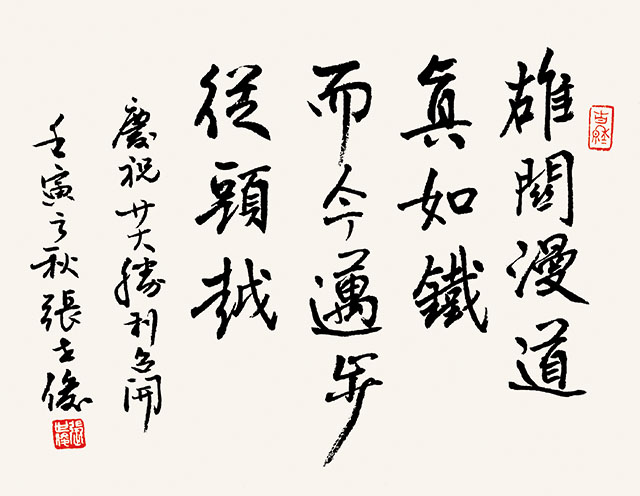 雄關漫道
真如鐵
而今邁步
從頭越
慶祝廿大勝利召開
壬寅之秋張士俊